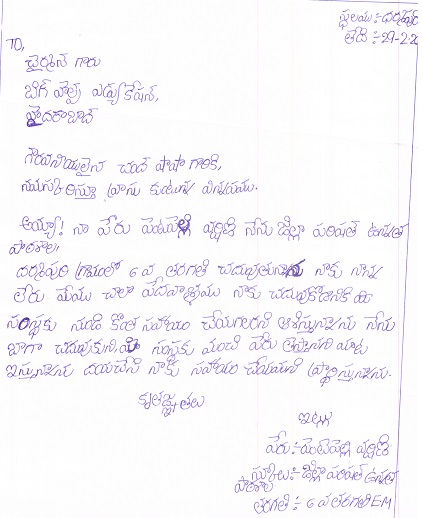 స్థలము:-ధర్మపురి
తేది:-29-2-2
TO,
చైర్మన్ గారు
బిగ్ హెల్ప్ ఎడ్యుకేషన్,
హైదరాబాద్
గౌరవనీయులైన చాంద్ పాషా గారికి,
నమస్కరిస్తూ వ్రాసు కుంటున్న విన్నపము.
అయ్యా! నా పేరు పెంటపెల్లి వర్షిణి నేను జిల్లా పరిషత్ ఉన్నత
పాఠశాల,
ధర్మపురి గ్రామంలో 6 వ తరగతి చదువుతున్నాను నాకు నాన్న
లేరు మేము చాలా పేదవాళ్ళము నాకు చదువుకోడానికి మీ
సంస్థకు నుండి కొంత సహాయం చేయగలరని ఆశిస్తున్నాను నేను
బాగా చదువుకుని, మీ సంస్థకు మంచి పేరు తెస్తానని మాట
ఇస్తున్నాను దయచేసి నాకు సహాయం చేయమని ప్రార్థిస్తున్నాను.
కృతజ్ఞతలు
ఇట్లు
పేరు:-పెంటపెల్లి వర్షిణి
స్కూలు:-జిల్లా పరిషత్ ఉన్నత
పాఠశాల
తరగతి:- 6 వ తరగతి EM